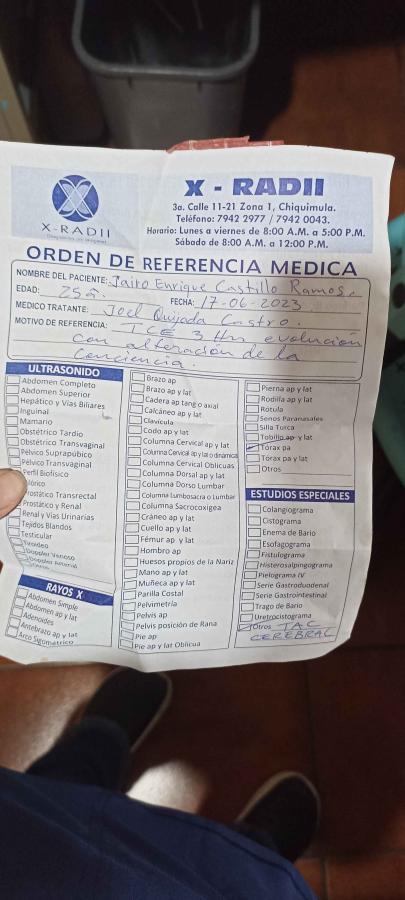 X-RADII
X - RADII
3a. Calle 11-21 Zona 1, Chiquimula.
Teléfono: 7942 2977 / 7942 0043.
Horario: Lunes a viernes de 8:00 A.M. a 5:00 P.M.
Sábado de 8:00 A.M. a 12:00 P.M.
ORDEN DE REFERENCIA MEDICA
NOMBRE DEL PACIENTE: Jairo Enrique Castillo Ramos
EDAD: 25 a. FECHA: 17-06-2023
MEDICO TRATANTE: Joel Quijada Castro.
MOTIVO DE REFERENCIA: TCE 3 Hrs evolución
con alteración de la
conciencia.
ULTRASONIDO
Abdomen Completo
Abdomen Superior
Hepático y Vías Biliares
Inguinal
Mamario
Obstétrico Tardio
Obstétrico Transvaginal
Pélvico Suprapúbico
Pélvico Transvaginal
Perfil Biofísico
Prostático Transrectal
Prostático y Renal
Renal y Vías Urinarias
Tejidos Blandos
Testicular
Tiroideo
Doppler Venoso
Doppler Arterial
RAYOS X
Abdomen Simple
Abdomen ap y lat
Adenoides
Antebrazo ap y lat
Arco Sigomático
Brazo ap
Brazo ap y lat
Cadera ap tang o axial
Calcáneo ap y lat
Clavícula
Codo ap y lat
Columna Cervical ap y lat
Columna Cervical ap y lat o dinámica
Columna Cervical Oblicuas
Columna Dorsal ap y lat
Columna Dorso Lumbar
Columna Lumbosacra o Lumbar
Columna Sacrocoxigea
Cráneo ap y lat
Cuello ap y lat
Fémur ap y lat
Hombro ap
Huesos propios de la Nariz
Mano ap y lat
Muñeca ap y lat
Parilla Costal
Pelvimetría
Pelvis ap
Pelvis posición de Rana
Pie ap
Pie ap y lat Oblicua
Pierna ap y lat
Rodilla ap y lat
Rótula
Senos Paranasales
Silla Turca
Tobillo ap y lat
Tórax pa
Tórax pa y lat
Otros
ESTUDIOS ESPECIALES
Colangiograma
Cistograma
Enema de Bario
Esofagograma
Fistulograma
Histerosalpingograma
Pielograma IV
Serie Gastroduodenal
Serie Gastrointestinal
Trago de Bario
Uretrocistograma
Otros TAC
CEREBRAL